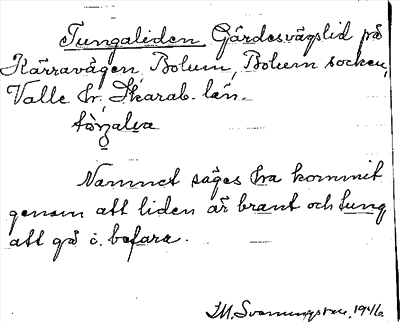 Tungaliden, Gärdesvägslid på
Kärravägen, Bolum, Bolum socken,
Valle hr, Skarab. län.
Namnet säges ha kommit
genom att liden är brant och tung
att gå i. befara.
1946